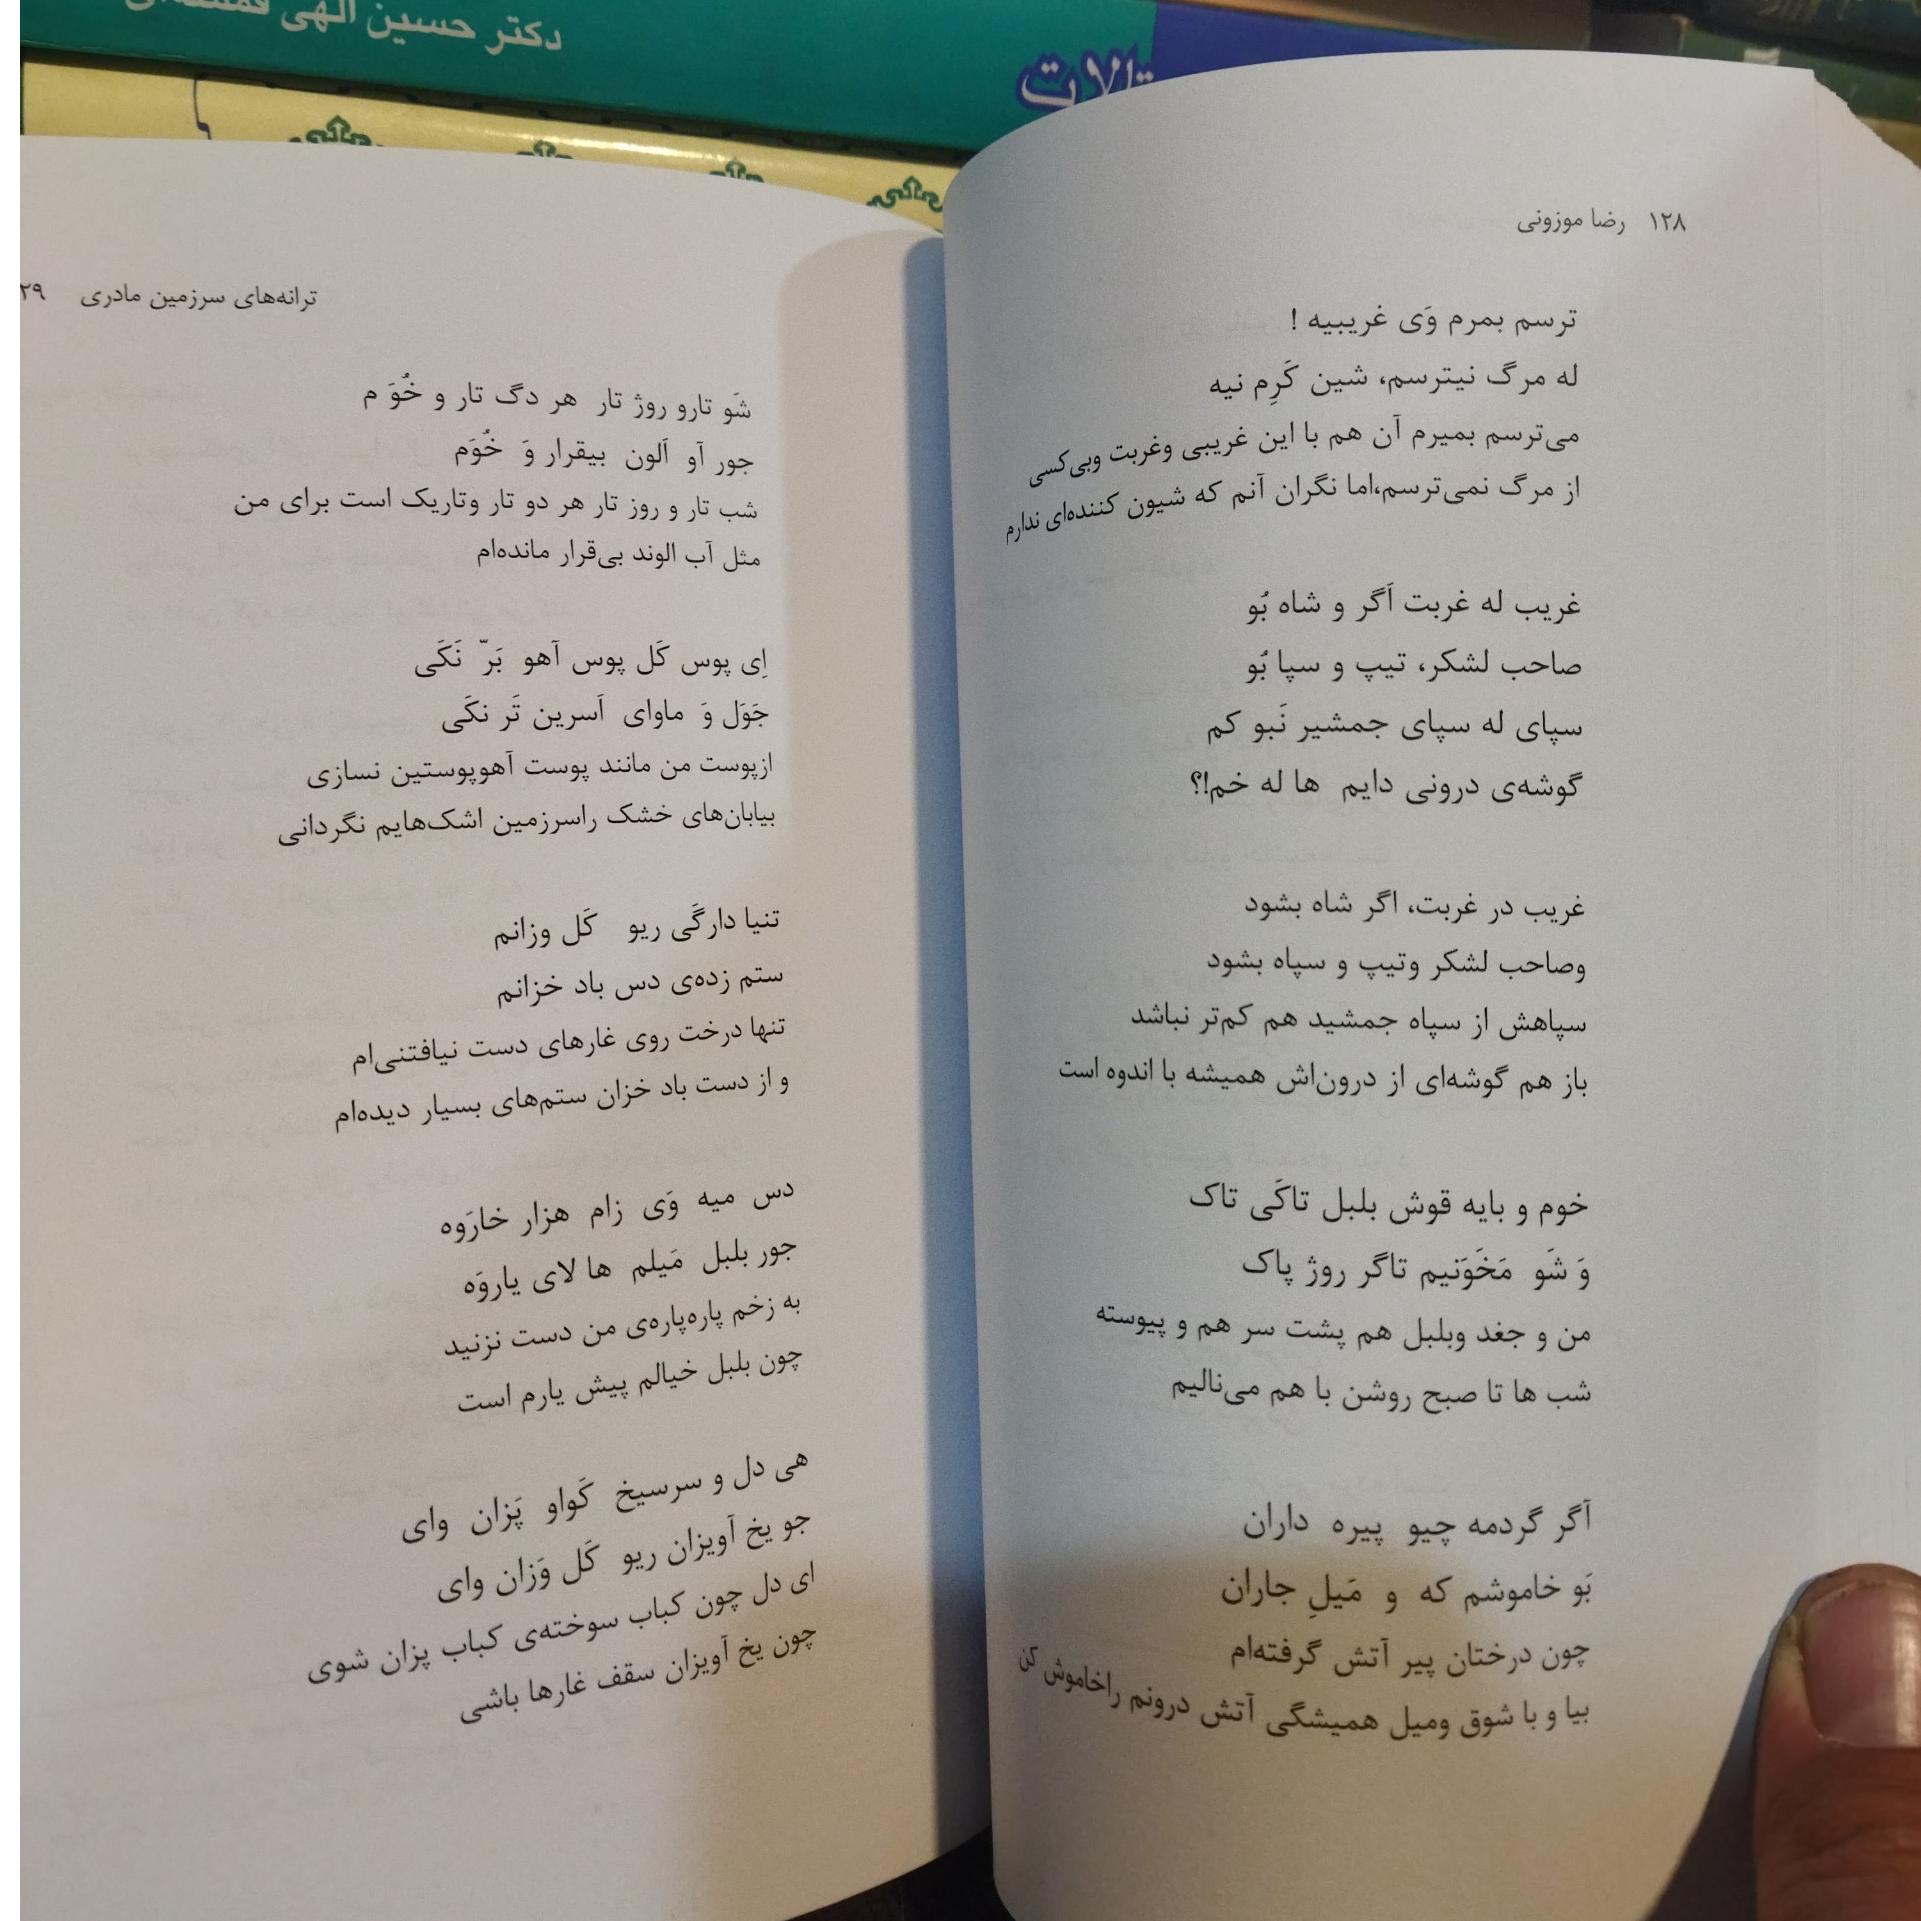 دکتر حسین الهی
۱۲۸ رضا موزونی
ترسم بمرم وَی غریبیه !
له مرگ نیترسم، شین کَرِم نیه
می‌ترسم بمیرم آن هم با این غریبی وغربت وبی‌کسی
از مرگ نمی‌ترسم،اما نگران آنم که شیون کننده‌ای ندارم
غریب له غربت اَگر و شاه بُو
صاحب لشکر، تیپ و سپا بُو
سپای له سپای جمشیر نَبو کم
گوشه‌ی درونی دایم ها له خم!؟
غریب در غربت، اگر شاه بشود
وصاحب لشکر وتیپ و سپاه بشود
سپاهش از سپاه جمشید هم کم‌تر نباشد
باز هم گوشه‌ای از درون‌اش همیشه با اندوه است
خوم و بایه قوش بلبل تاکَی تاک
وَ شَو مَخَوَنیم تاگر روژ پاک
من و جغد وبلبل هم پشت سر هم و پیوسته
شب ها تا صبح روشن با هم می‌نالیم
آگر گردمه چیو پیره داران
بَو خاموشم که و مَیلِ جاران
چون درختان پیر آتش گرفته‌ام
بیا و با شوق ومیل همیشگی آتش درونم راخاموش کن
ترانه‌های سرزمین مادری ۲۹
شَو تارو روژ تار هر دگ تار و خُوَ م
جور آو اَلون بیقرار وَ خُوَم
شب تار و روز تار هر دو تار وتاریک است برای من
مثل آب الوند بی‌قرار مانده‌ام
اِی پوس کَل پوس آهو بَرّ نَکَی
جَوَل وَ ماوای اَسرین تَر نکَی
ازپوست من مانند پوست آهوپوستین نسازی
بیابان‌های خشک راسرزمین اشک‌هایم نگردانی
تنیا دارگَی ریو کَل وزانم
ستم زده‌ی دس باد خزانم
تنها درخت روی غارهای دست نیافتنی‌ام
و از دست باد خزان ستم‌های بسیار دیده‌ام
دس میه وَی زام هزار خارَوه
جور بلبل مَیلم ها لای یاروَه
به زخم پاره‌پاره‌ی من دست نزنید
چون بلبل خیالم پیش یارم است
هی دل و سرسیخ کَواو پَزان وای
جو یخ آویزان ریو کَل وَزان وای
ای دل چون کباب سوخته‌ی کباب پزان شوی
چون یخ آویزان سقف غارها باشی